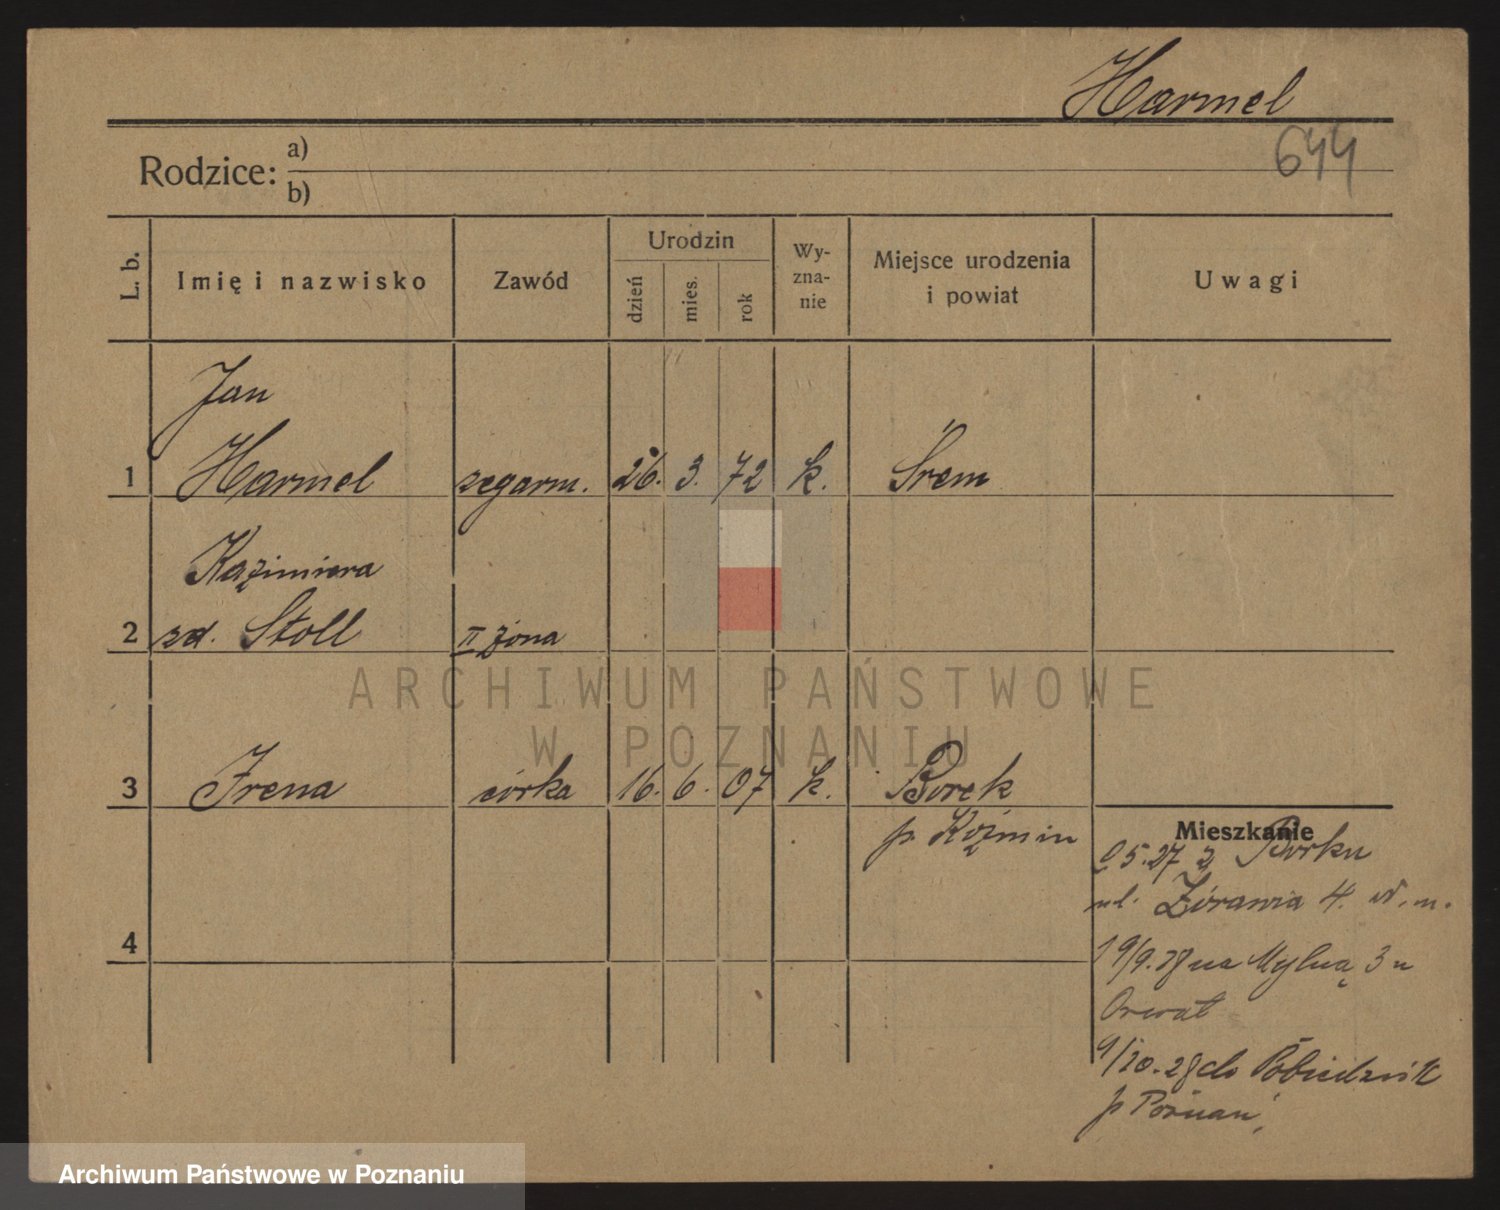 Harmel
644
Rodzice: a)
b)
L. b. Imię i nazwisko Zawód Urodzin dzień mies. rok Wy-zna-nie Miejsce urodzenia i powiat Uwagi
Jan
1 Harmel zegarm. 26. 3. 72 k. Śrem
Kazimiera
2 zd. Stoll II żona
ARCHIWUM PAŃSTWOWE
W POZNANIU
3 Irena córka 16. 6. 07 k. Borek
p. Koźmin
Mieszkanie
5.27 z Borku
ul. Żórawia 4.
4
19/9.28 na Mylną 3 u
Orwat
9/10.28 do Pobiedzisk
p Poznań
Archiwum Państwowe w Poznaniu